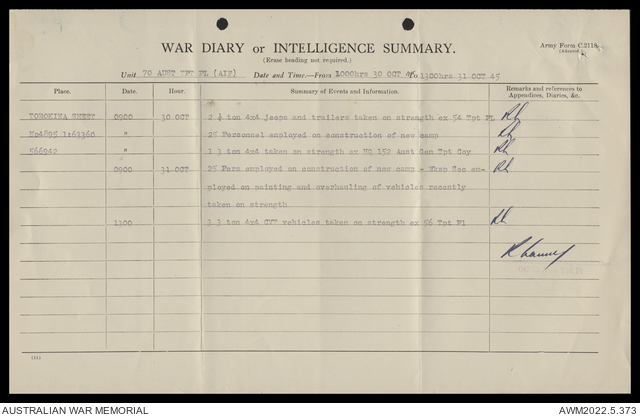 WAR DIARY or INTELLIGENCE SUMMARY.
Army Form C.2118.
(Erase heading not required.)
Unit 70 AUST TPT PL (AIF) Date and Time—From 1000hrs 30 OCT to 1300hrs 31 OCT 45
Place. Date. Hour. Summary of Events and Information. Remarks and references to Appendices, Diaries, &c.
TOROKINA SHEET 0900 30 OCT 2 ½ ton 4x4 jeeps and trailers taken on strength ex 54 Tpt PL
No4895 1:63360 " 25 Personnel employed on construction of new camp
566942 " 1 3 ton 4x4 taken on strength ex HQ 152 Aust Gen Tpt Coy
0900 31 OCT 25 Pers employed on construction of new camp - Wksp Sec em-
ployed on painting and overhauling of vehicles recently
taken on strength
1100 3 3 ton 4x4 vehicles taken on strength ex 56 Tpt Pl
AUSTRALIAN WAR MEMORIAL
AWM2022.5.373